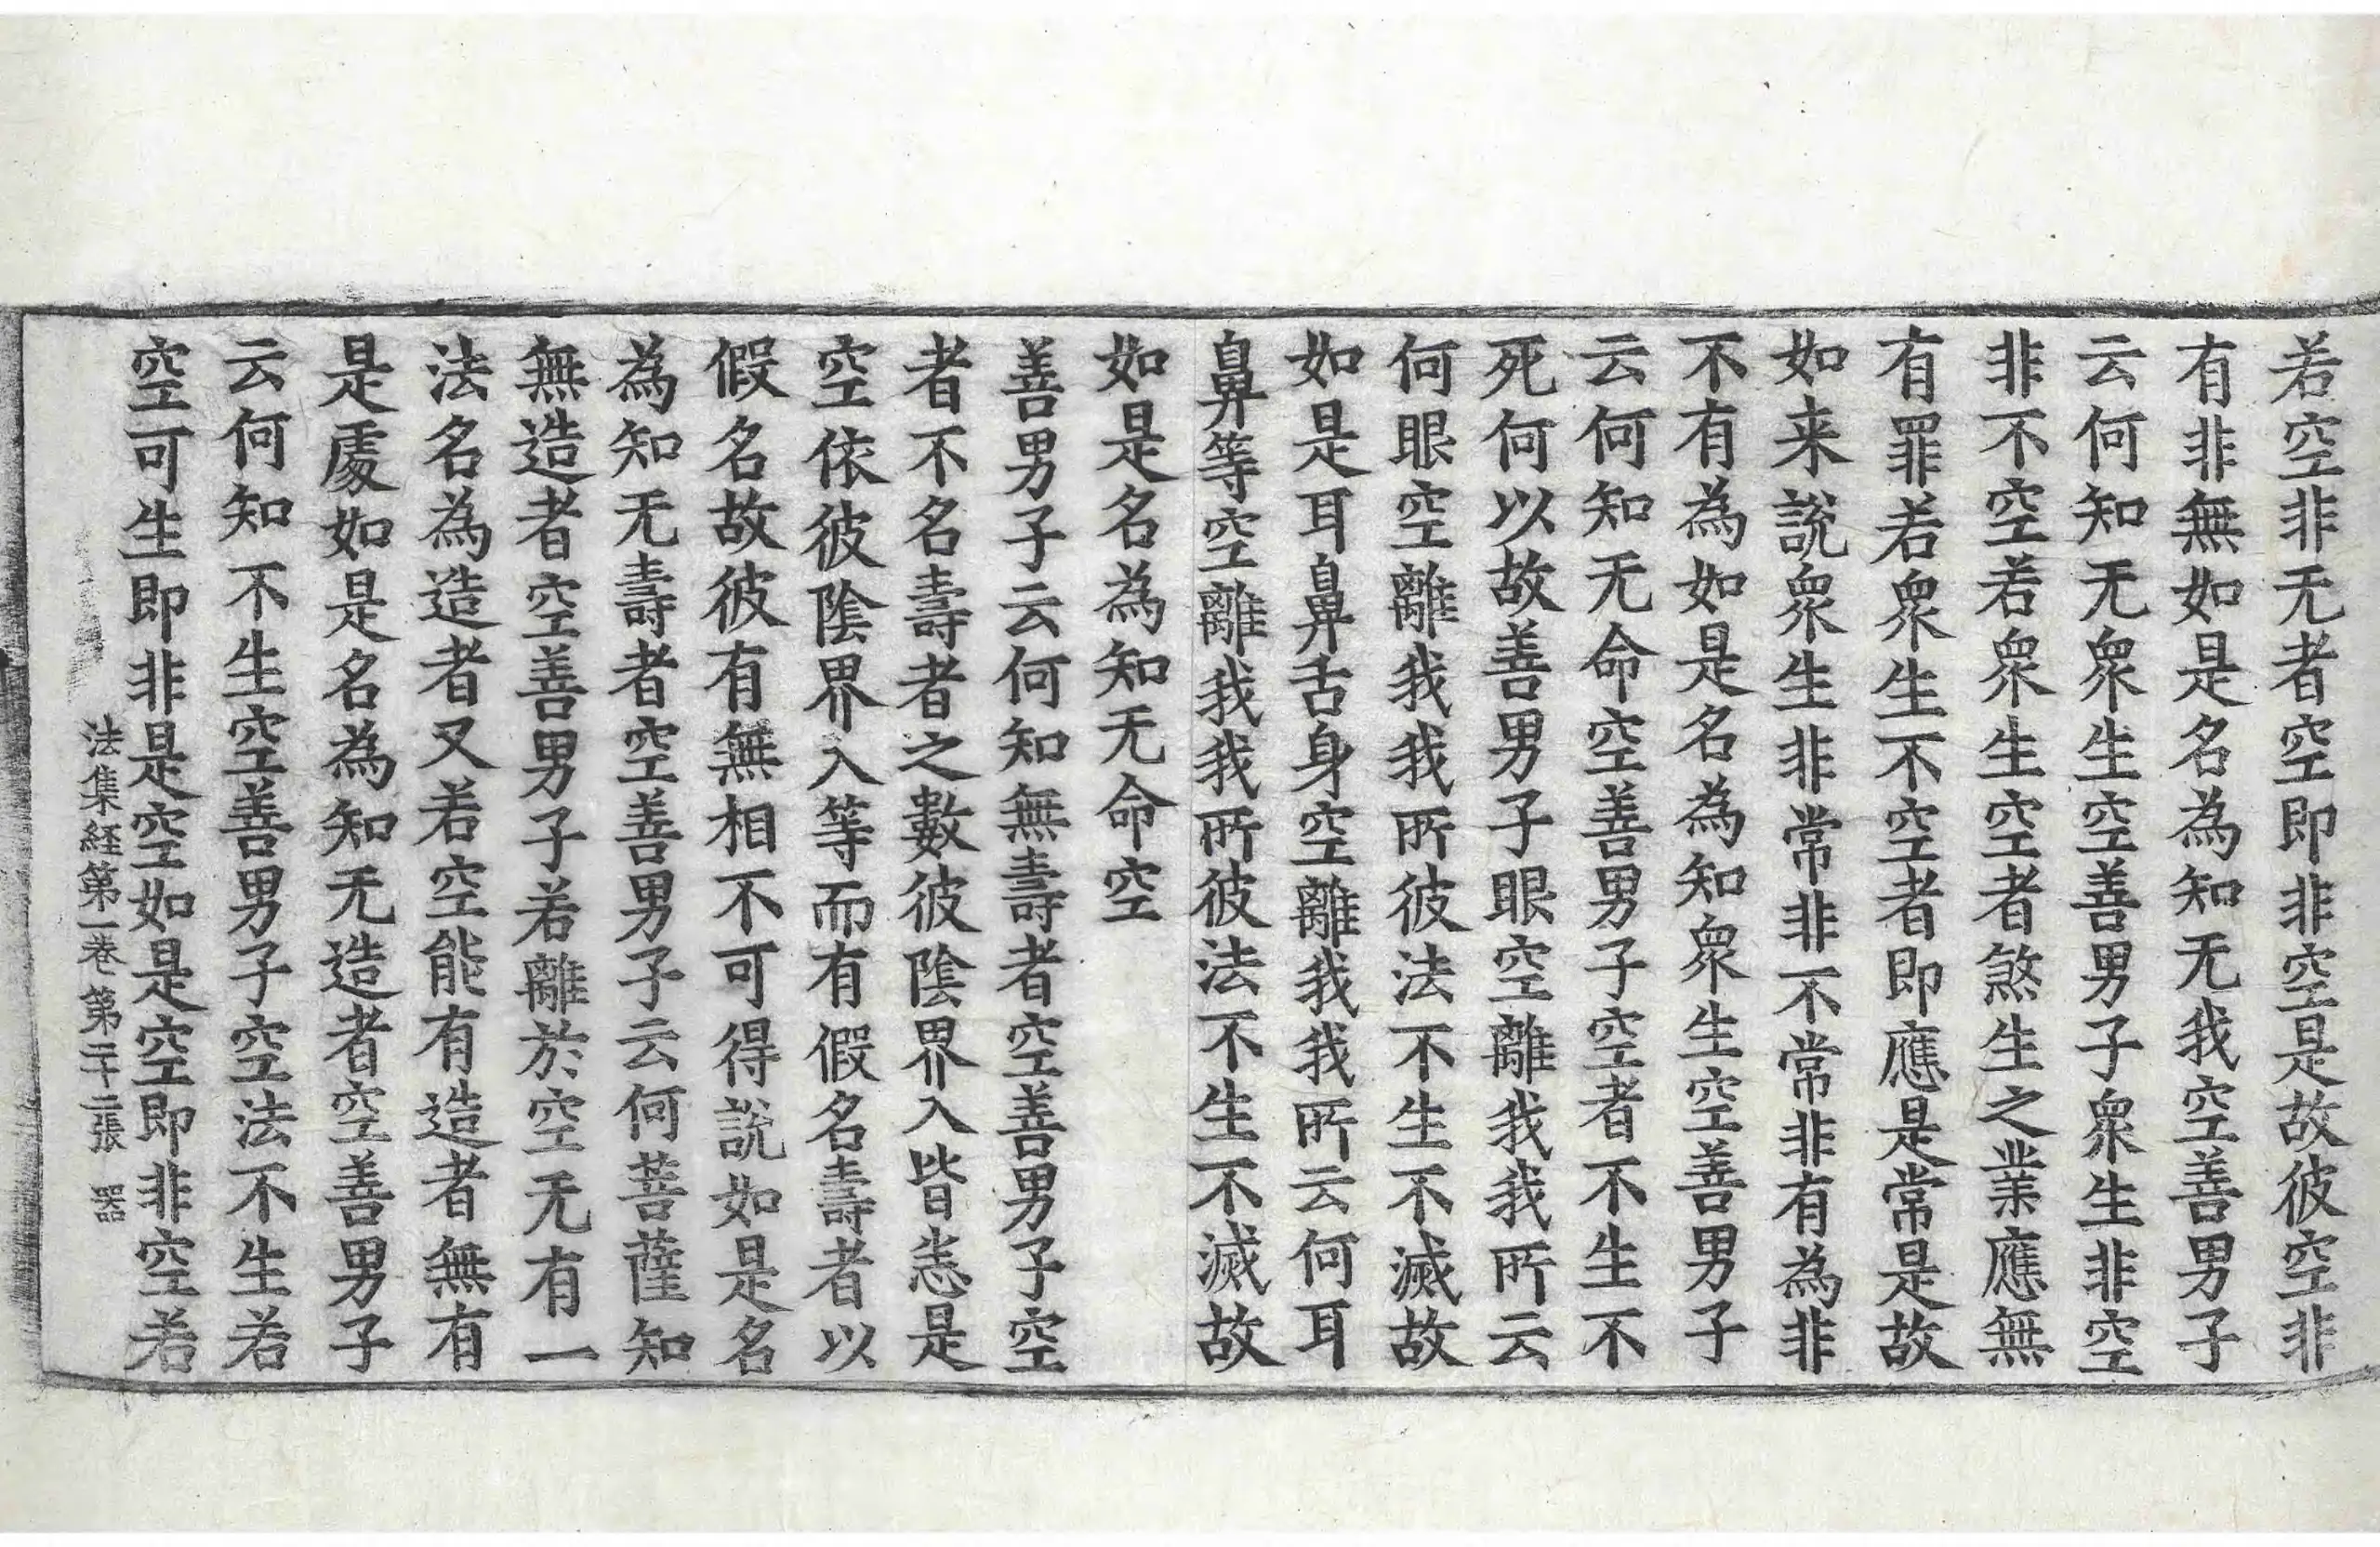 若空非无者空即非空是故彼空非
有非無如是名為知无我空善男子
云何知无衆生空善男子衆生非空
非不空若衆生空者煞生之業應無
有罪若衆生不空者即應是常是故
如来說衆生非常非不常非有為非
不有為如是名為知衆生空善男子
云何知无命空善男子空者不生不
死何以故善男子眼空離我我所云
何眼空離我我所彼法不生不滅故
如是耳鼻舌身空離我我所云何耳
鼻等空離我我所彼法不生不滅故
如是名為知无命空
善男子云何知無壽者空善男子空
者不名壽者之數彼陰界入皆恙是
空依彼陰界入等而有假名壽者以
假名故彼有無相不可得說如是名
為知无壽者空善男子云何菩薩知
無造者空善男子若離於空无有一
法名為造者又若空能有造者無有
是處如是名為知无造者空善男子
云何知不生空善男子空法不生若
空可生即非是空如是空即非空若
法集経第一巻 第二十二張 器